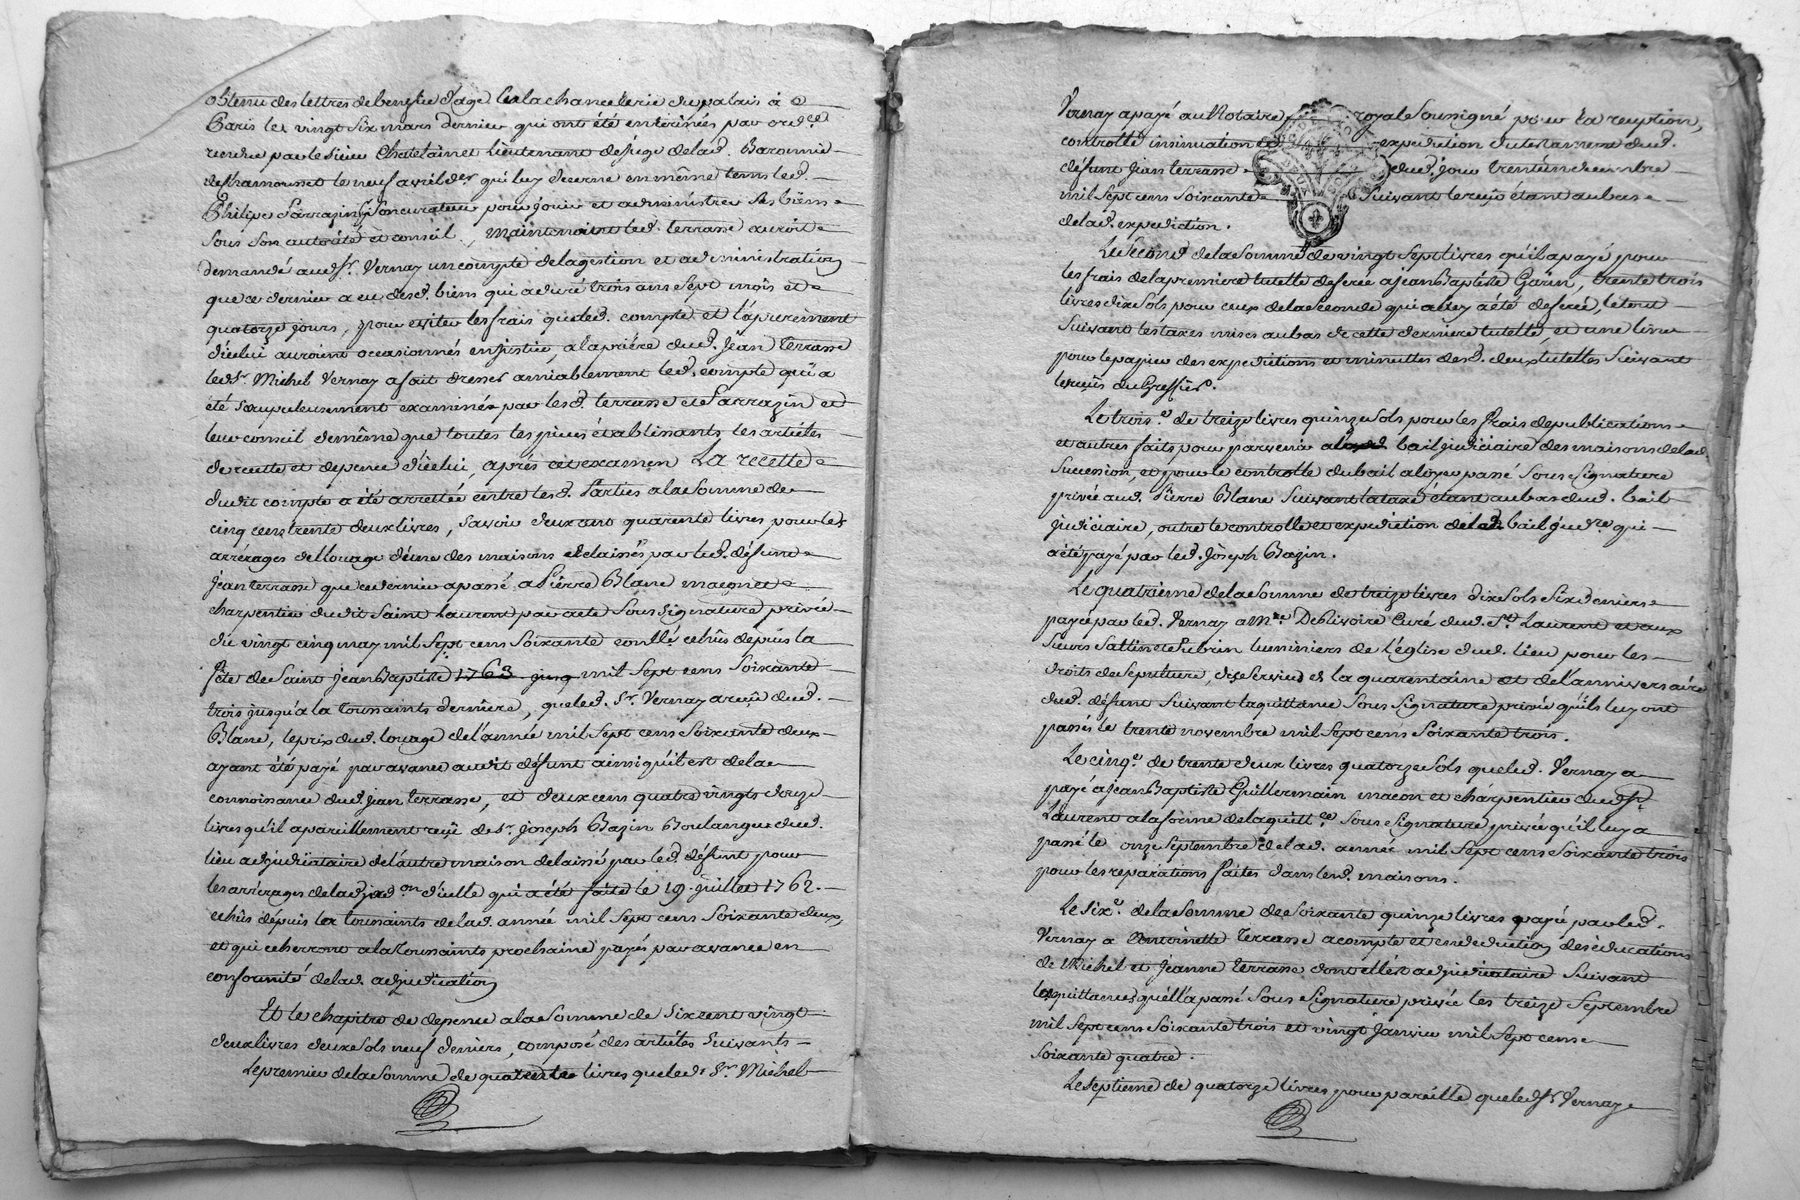 obtenu des lettres de benefice d'age en la chancelerie du palais à
Paris le vingt six mars dernier qui ont été enterinées par ord.ce
rendue par le sieur Chatelain et Lieutenant de juge de lad. Baronnie
de Chamousset le neuf avril der. qui luy decerne en même tems led.
Philipe Sarrazin pour jouir et administrer ses biens
sous son autorité et conseil, maintenant led. terrasse auroit
demandé aud. Sr. Vernay un compte de la gestion et administration
que ce dernier a eu desd. biens qui a duré trois ans sept mois et
quatorze jours, pour eviter les frais que led. compte et l'apurement
d'icelui auroient occasionnés en justice, a la prière dud. Jean Terrasse
led. Sr. Michel Vernay a fait dresser amiablement led. compte qui a
été scrupuleusement examinés par lesd. terrasse et Sarrazin et
leur conseil de même que toutes les pieces établissants les articles
de recette et depence d'icelui, après cet examen La recette
dudit compte a été arrettée entre lesd. Parties a la somme de
cinq cens trente deux livres, savoir deux cent quarente livres pour les
arrérages de louage d'une des maisons délaissés par led. défunt
Jean terrasse que ce dernier a passé a Pierre Blanc maçon et
charpentier dudit Saint Laurent par acte sous signature privée
du vingt cinq may mil sept cens soixante echûs depuis la
fête de Saint Jean Baptiste 1763 jusq mil sept cens soixante
trois jusqu'a la toussaints derniere, que led. Sr. Vernay a reçû dud.
Blanc, le prix dud. louage de l'année mil sept cens soixante deux
ayant été payé par avance audit défunt ainsi qu'il est de la
connoissance dud. Jean terrasse, et deux cens quatre vingts douze
livres qu'il a pareillement reçû de Sr. Joseph Bazin Boulanger dud.
lieu adjudicataire de l'autre maison delaissé par led. défunt pour
les arrérages de lad. jad.on d'icelle qui a été faite le 19. juillet 1762.
echûs depuis la toussaints de lad. année mil sept cens soixante deux,
et qui echerront a la toussaints prochaine payés par avance en
conformité de lad. adjudication
Et le chapitre de depence a la somme de six cent vingt
deux livres deux sols neuf deniers, composé des articles suivants
Le premier de la somme de quatorze livres que led. Sr. Michel
Vernay a payé au Notaire royal soussigné pour la reception,
controlle insinuation et expedition du testament dud.
défunt Jean terrasse dud. jour trente un decembre
mil sept cens soixante suivant le reçû étant au bas
de lad. expedition.
Le Second de la somme de vingt sept livres qu'il a payé pour
les frais de la premiere tutelle deferée a Jean Baptiste Garin, trente trois
livres dix sols pour ceux de la seconde qui a luy a été deferée, le tout
suivant les taxes mises au bas de cette derniere tutelle, et une livre
pour le papier des expeditions et minuttes desd. deux tutelles suivant
les reçûs du Greffier.
Le trois.e de treize livres quinze sols pour les frais de publications
et autres faits pour parvenir au bail judiciaire des maisons de lad.
Succession, et pour le controlle du bail a loyer passé sous signature
privée aud. Pierre Blanc suivant la taxe étant au bas dud. bail
judiciaire, outre le controlle et expedition dud. bail jud.re qui
a été payé par led. Joseph Bazin.
Le quatrieme de la somme de treize livres dix sols six deniers
payée par led. Vernay a Mre Curé dud. St. Laurent et aux
Sieurs Sattin et luminiers de l'église dud. lieu pour les
droits de sepulture, de service de la quarentaine et de l'anniversaire
dud. défunt suivant la quittance sous signature privée qu'ils luy ont
passés le trente novembre mil sept cens soixante trois.
Le cinq.e de trente deux livres quatorze sols que led. Vernay a
payé a Jean Baptiste Guillermain macon et charpentier dud. St.
Laurent a la forme de la quitt.ce sous signature privée qu'il luy a
passé le onze septembre de lad. année mil sept cens soixante trois
pour les reparations faites dans lesd. maisons.
Le six.e de la somme de soixante quinze livres payée par led.
Vernay a Antoinette Terrasse a compte et en deduction des éducations
de Michel et Jeanne terrasse dont elle est adjudicataire suivant
les quittances qu'ell'a passé sous signature privée les treize septembre
mil sept cens soixante trois et vingt janvier mil sept cens
soixante quatre.
Le septieme de quatorze livres pour pareille que led. Sr Vernay